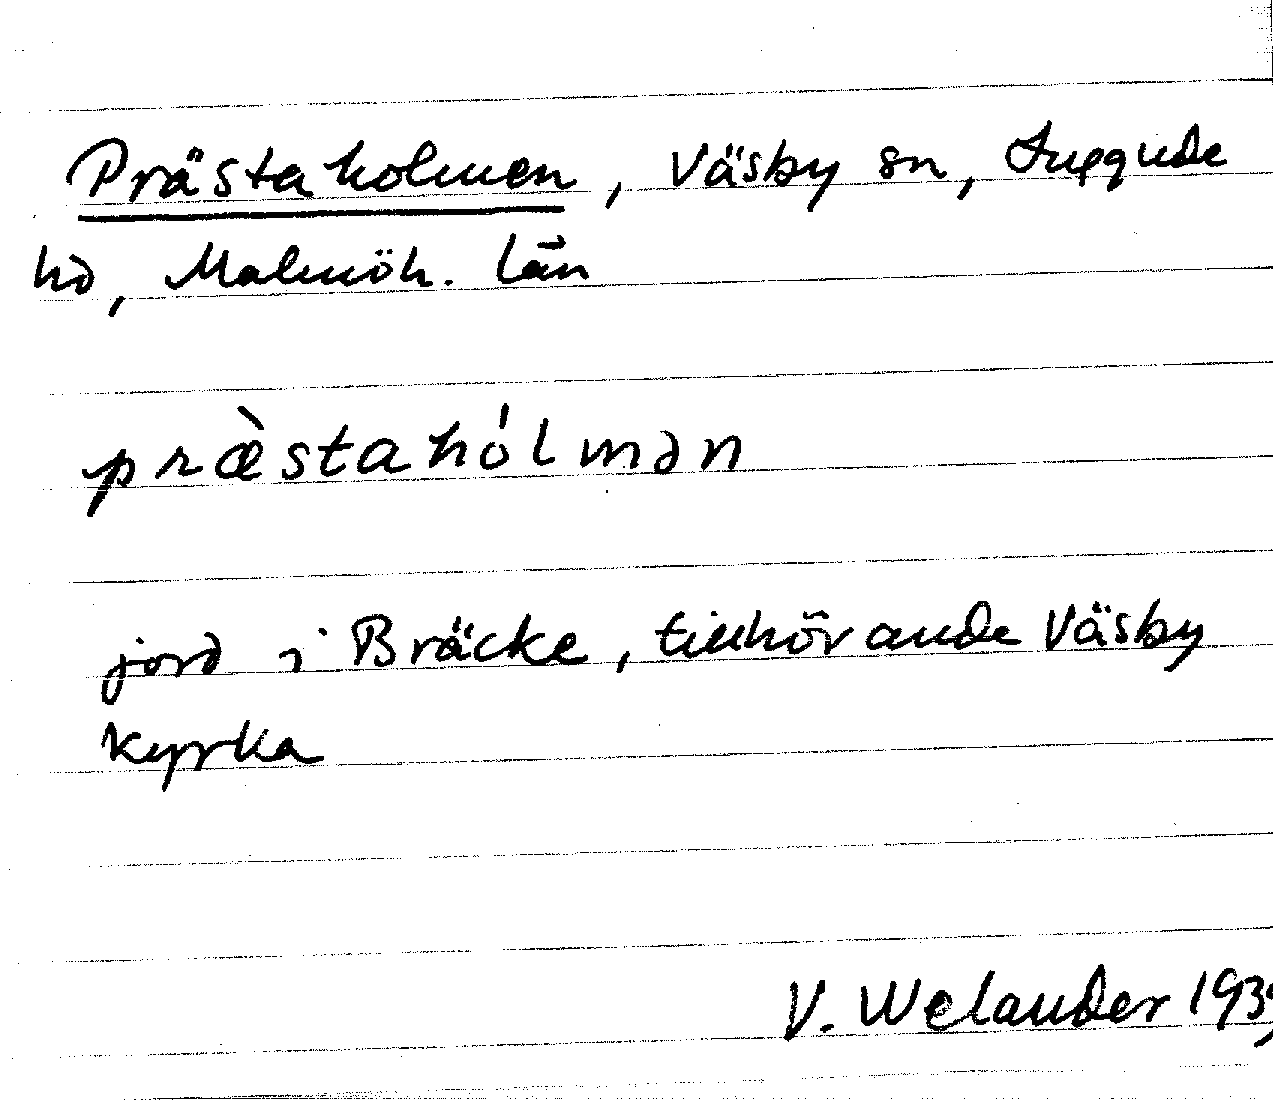 Prästaholmen, Väsby sn, Luggude
hd, Malmöh. län
præ̀stahólmən
jord i Bräcke, tillhörande Väsby
kyrka
V. Welander